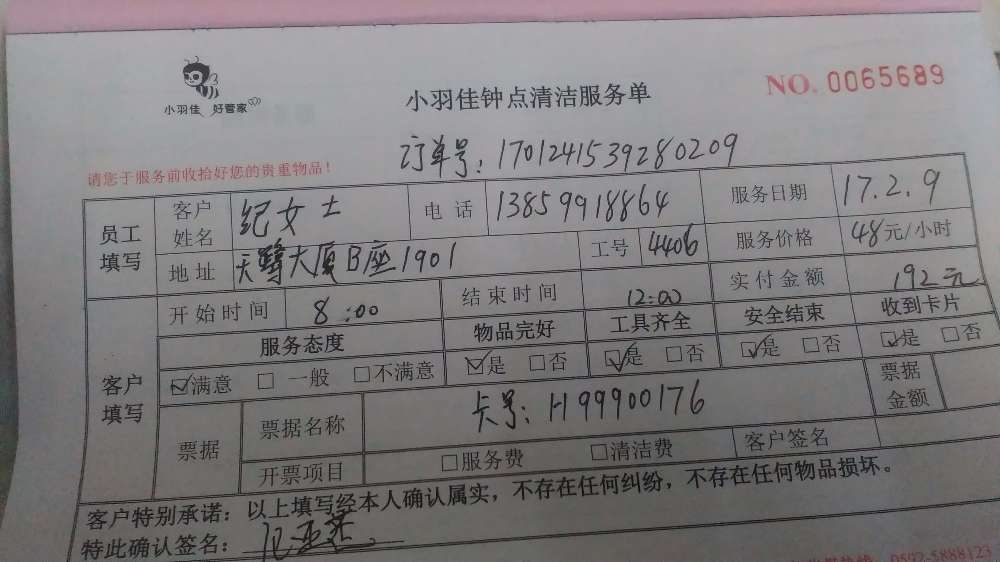 小羽佳 好管家
小羽佳钟点清洁服务单
NO. 0065689
订单号：170124153928 0209
请您于服务前收拾好您的贵重物品！
员工填写 客户姓名 纪女士 电话 13859918864 服务日期 17.2.9
地址 天鹭大厦B座1901 工号 4406 服务价格 48元/小时
客户填写 开始时间 8:00 结束时间 12:00 实付金额 192元
服务态度 物品完好 工具齐全 安全结束 收到卡片
☑满意 □ 一般 □不满意 ☑是 □否 ☑是 □否 ☑是 □否 ☑是 □否
票据 票据名称 卡号：H99900176 票据金额
开票项目 □服务费 □清洁费 客户签名
客户特别承诺：以上填写经本人确认属实，不存在任何纠纷，不存在任何物品损坏。
特此确认签名：
0592-5888123